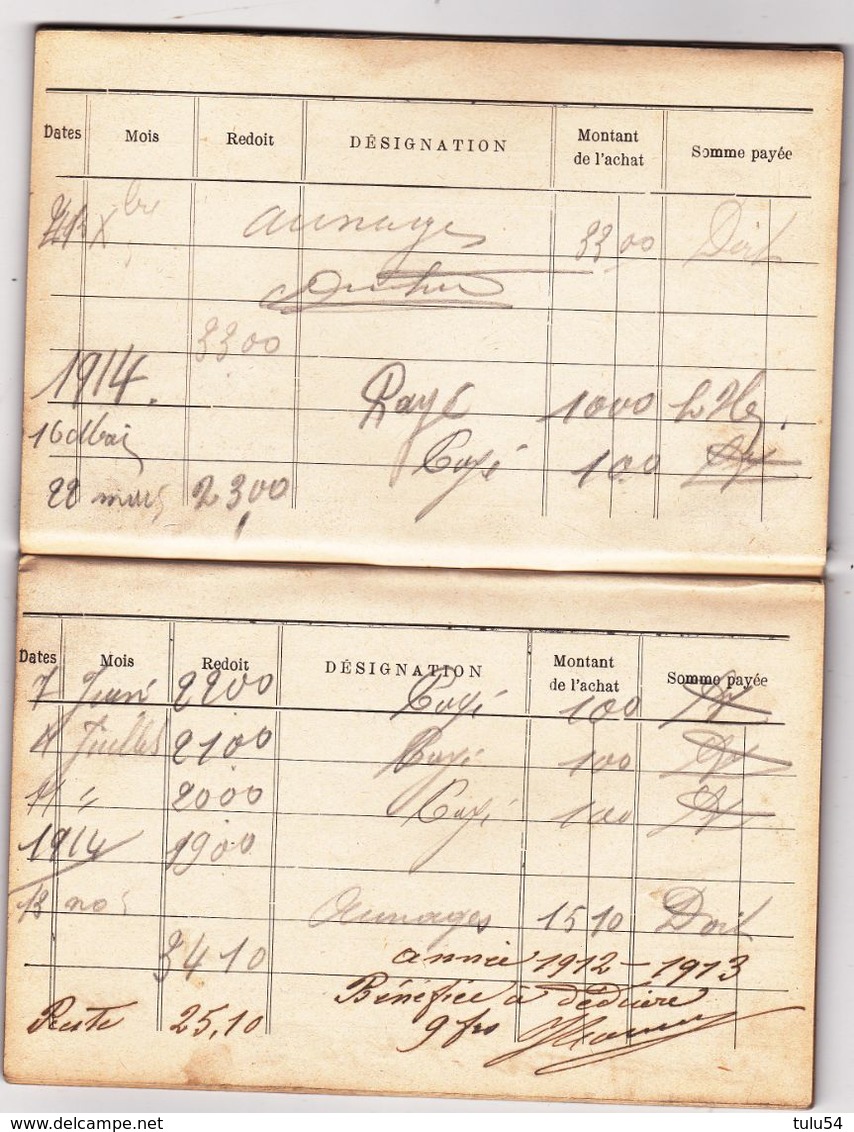 Dates Mois Redoit DÉSIGNATION Montant de l'achat Somme payée
bre aunages 33 00 Doit
33 00
1914. Payé 10 00
Payé 1 00
22 mars 23 00
Dates Mois Redoit DÉSIGNATION Montant de l'achat Somme payée
7 22 00 Payé 1 00
4 Juillet 21 00 Payé 1 00
11 " 20 00 Payé 1 00
1914 19 00
18 nov Aunages 15 10 Doit
34 10 année 1912 - 1913
Bénéfice à déduire
Reste 25,10 9 frs
www.delcampe.net tulu54